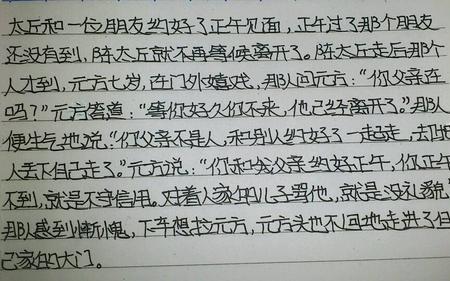 太丘和一位朋友约好了正午见面，正午过了那个朋友
还没有到，陈太丘就不再等候离开了。陈太丘走后那个
人才到，元方七岁，在门外嬉戏，那人问元方：“你父亲在
吗？”元方答道：“等你好久你不来，他已经离开了。”那人
便生气地说：“你父亲不是人，和别人约好了一起走，却把
人丢下自己走了。”元方说：“你和我父亲约好正午，你正午
不到，就是不守信用。对着人家的儿子骂他，就是没礼貌”
那人感到惭愧，下车想拉元方，元方头也不回地走进了自
己家的大门。